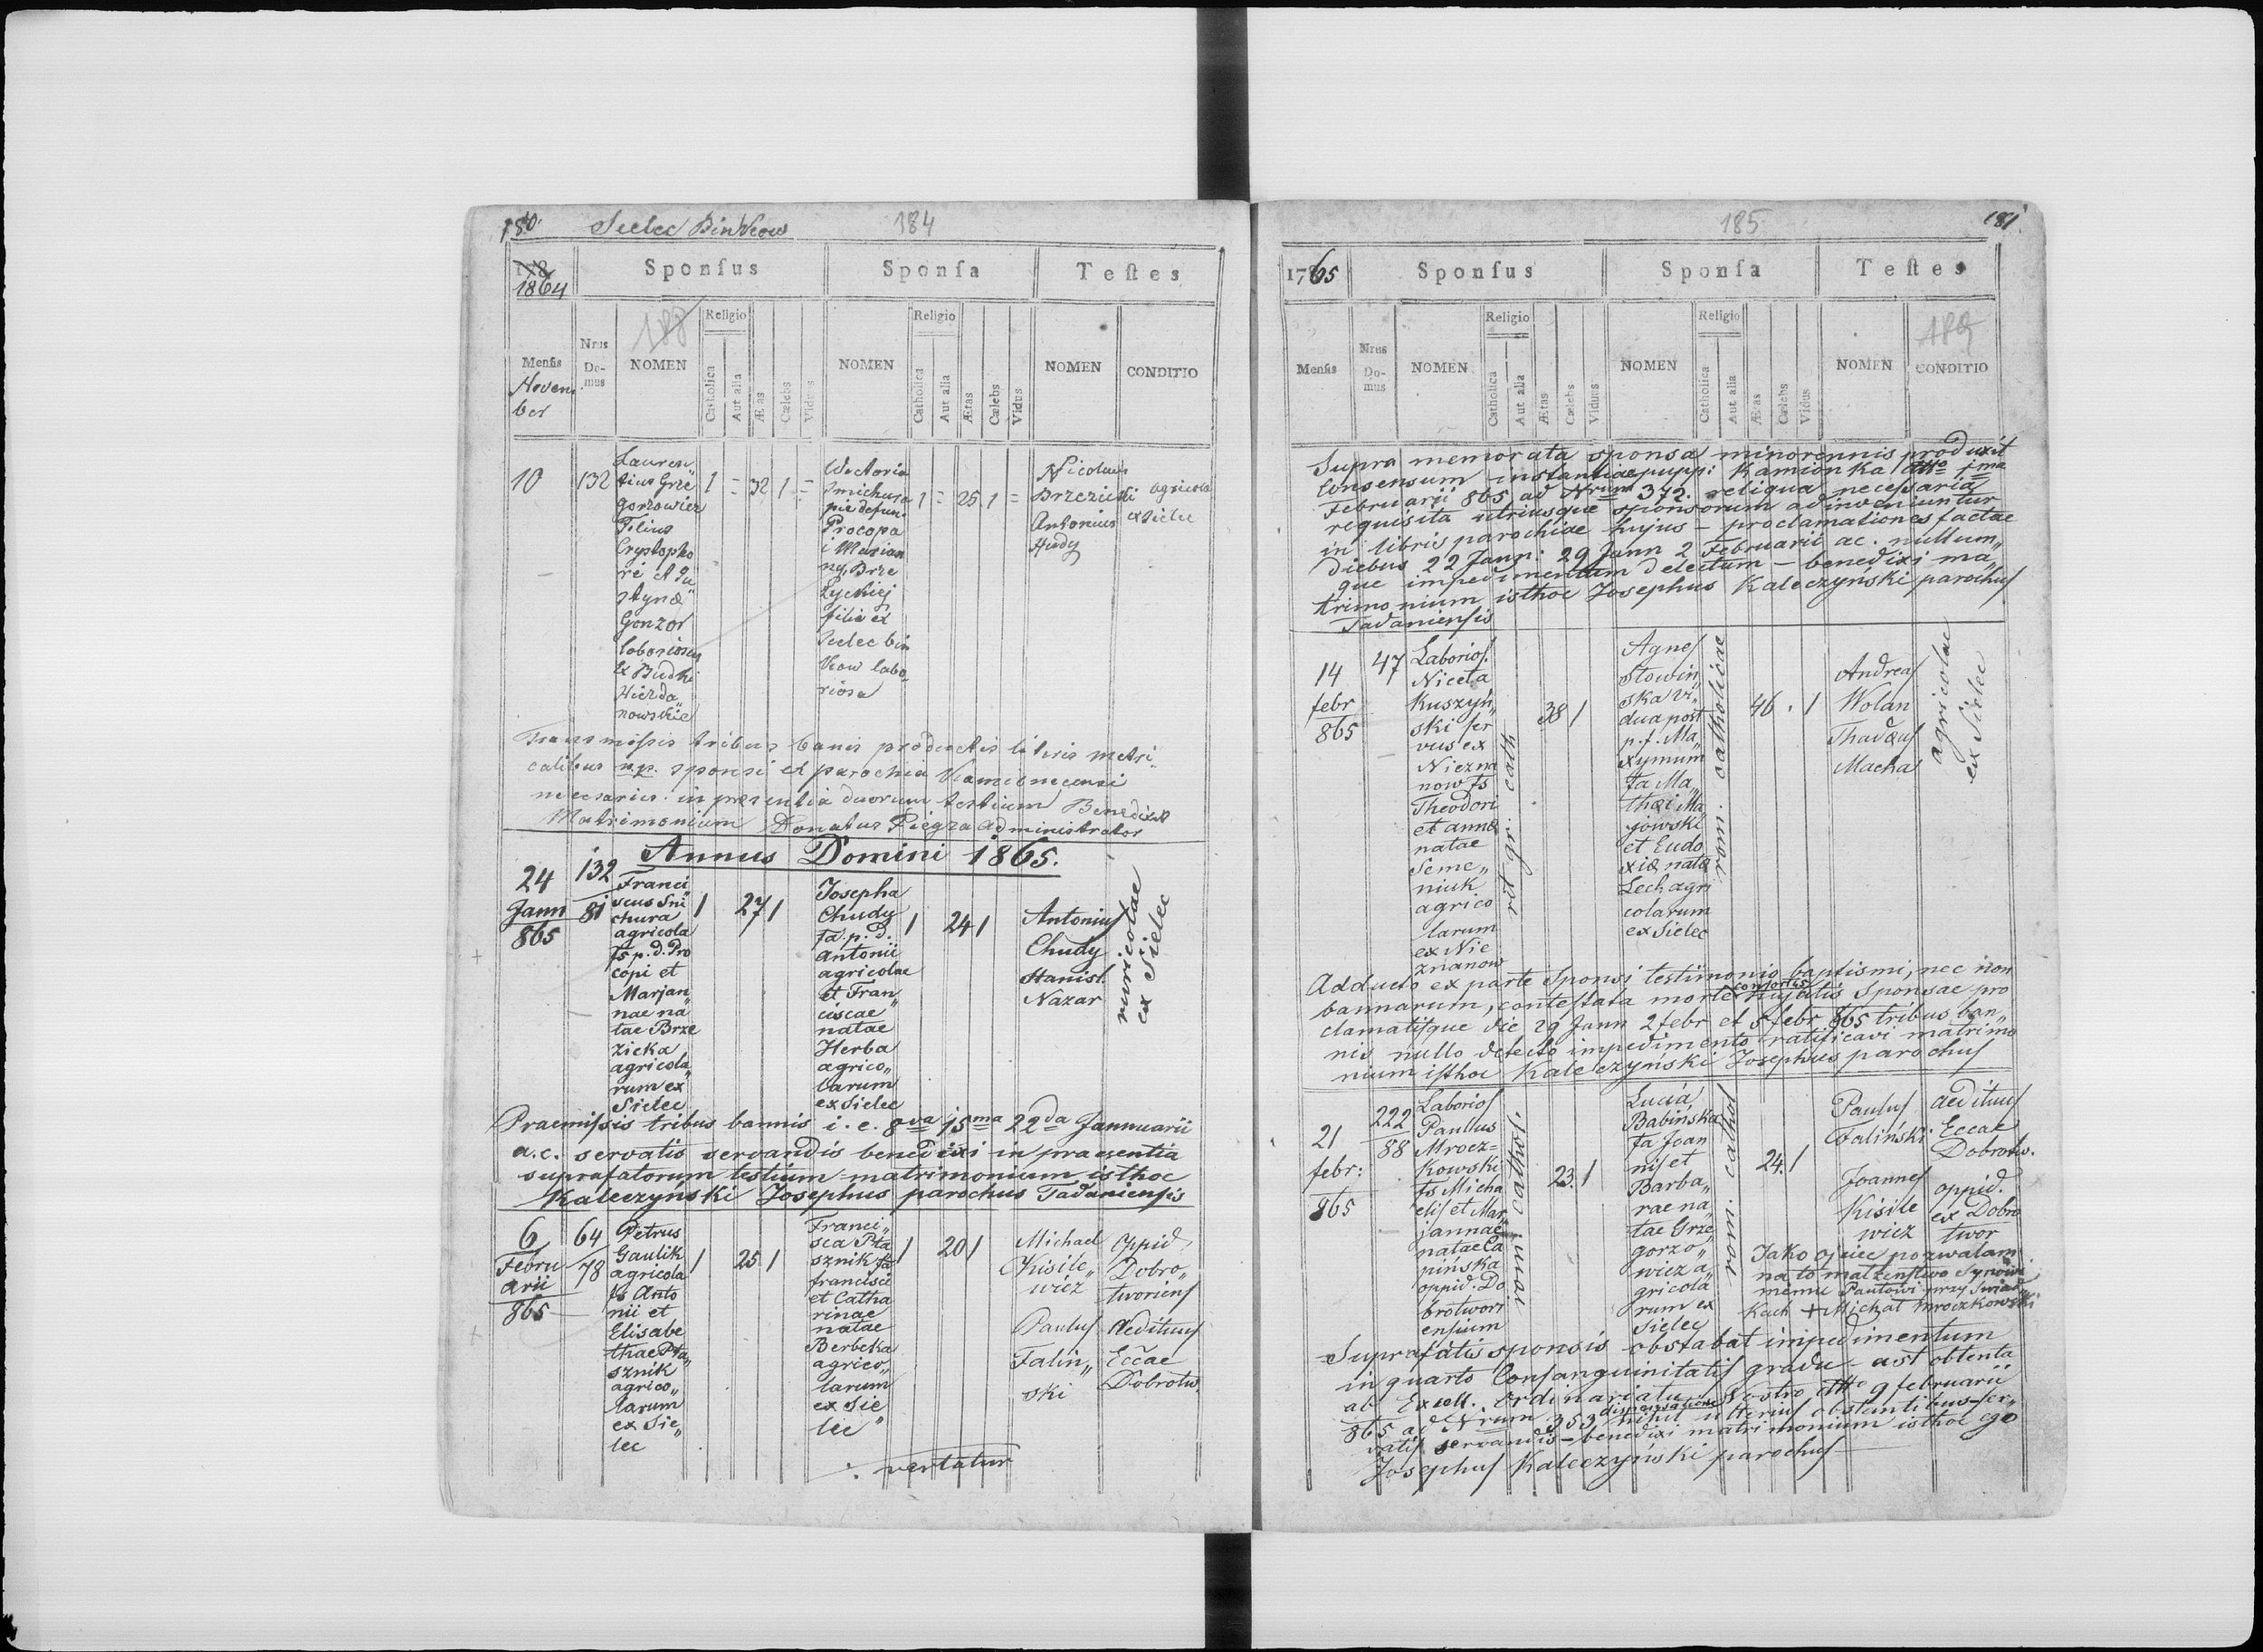 180. Sielec Binkow 184
178
1864
Sponsus Sponsa Testes
188
Mensis
Novem
ber
Nrus
Do-
mus
NOMEN
Religio
Catholica
Aut alia
Ætas
Cælebs
Viduus
NOMEN
Religio
Catholica
Aut alia
Ætas
Cælebs
Vidua
NOMEN
CONDITIO
10
132
Lauren„
tius Grze
gorzowicz
Filius
Crystopho
ri et Ju
stynæ
Gonzor
laboriosus
ex Budki
Niezna„
nowskie
1 = 32 1 =
Wictoria
Smichura
pie defun.
Procopa
i Marian
ny Brze
zyckiej
filia ex
Sielec bin
kow labo„
riosa
1 = 25. 1 =
Nicolaus
Brzezicki
Antonius
Hudy
agricola
ex Sielec
Transmissis tribus banis productis literis metri„
calibus n.p. sponsi ex parochia Kamionecensi
necesariis in præsentia duorum testium Benedixit
Matrimonium Donatus Piegza administrator
Annus Domini 1865.
24
Jann
865
132
81
Franci„
scus Smi
chura
agricola
fs p. d. Pro
copi et
Marjan„
nae na
tae Brze
zicka
agricola„
rum ex
Sielec
1 27 1
Josepha
Chudy
fa. p. d.
Antonii
agricolae
et Fran„
ciscae
natae
Herba
agrico„
larum
ex Sielec
1 24 1
Antonius
Chudy
Stanisl.
Nazar
ruricolae
ex Sielec
Praemissis tribus bannis i. e. 8va 15ma 22da Jannuarii
a. c. servatis servandis benedixi in praesentia
suprafatorum testium matrimonium isthoc
Kaleczyński Josephus parochus Tadaniensis
6
Febru
arii
865
64
78
Petrus
Gaulik
agricola
fs Anto
nii et
Elisabe
thae Pta„
sznik
agrico„
larum
ex Sie„
lec
1 25 1
Franci„
sca Pta
sznik fa
francisci
et Catha
rinae
natae
Berbeka
agrico„
larum
ex Sie
lec
1 20 1
Michael
Kisile„
wicz
Paulus
Falin„
ski
Oppid.
Dobro„
tworiens
Aedituus
Eccae
Dobrotw.
vertatur
185 181
1765
Sponsus Sponsa Testes
189
Mensis
Nrus
Do-
mus
NOMEN
Religio
Catholica
Aut alia
Ætas
Cælebs
Viduus
NOMEN
Religio
Catholica
Aut alia
Ætas
Cælebs
Vidua
NOMEN
CONDITIO
Supra memorata sponsa minorennis produxit
consensum instantiae pupp: Kamionka dtto 1ma
Februarii 865 ad Nrum 372. reliqua necessaria
requisita utriusque sponsorum adinveniuntur
in libris parochiae hujus – proclamationes factae
diebus 22 Jann: 29 Jann 2 Februarii ac. nullum„
que impedimentum detectum – benedixi ma„
trimonium isthoc Josephus Kaleczyński parochus
Tadaniensis
14
febr
865
47
Laborios.
Niceta
Kuszyń„
ski ser
vus ex
Niezna
now fs
Theodori
et annæ
natae
Seme„
niuk
agrico
larum
ex Nie
znanow
rit. gr. cath
38 1
Agnes
Słowin„
ska vi„
dua post
p. f. Ma„
xymum
fa Ma„
thæi Ma
jowski
et Eudo
xiæ natæ
Lech agri
colarum
ex Sielec
rom. catholicae
46 . 1
Andreas
Wolan
Thadæus
Macha
agricolae
ex Sielec
Adducto ex parte Sponsi testimonio baptismi, nec non
bannarum, contestata morte consortis hujatis Sponsae pro
clamatisque die 29 Jann 2 febr et 5 febr 865 tribus ban„
nis nullo detecto impedimento ratificavi matrimo
nium isthoc Kaleczyński Josephus parochus
21
febr:
865
222
88
Laborios
Paulus
Mrocz=
kowski
fs Micha
elis et Mar„
jannae
natae Ca
pińska
oppid. Do
brotwori
ensium
romi. cathol.
23. 1
Lucia
Babińska
fa Joan
nis et
Barba„
rae na„
tae Grze„
gorzo„
wicz a„
gricola
rum ex
Sielec
romi. cathol
24. 1
Paulus
Faliński
Joannes
Kisile
wicz
aedituus
Eccae
Dobrotw.
oppid.
ex Dobro
twor
Jako ojciec pozwalam
na to małżeństwo Synowi
memu Pawłowi przy świad„
kach + Michał Mroczkowski
Suprafatis sponsis obstabat impedimentum
in quarto Consanguinitatis gradu – ast obtenta
ab Excell. Ordinariatu Nostro dtto 9 februarii
865 ad Nrum 353 dispensatione nihil ulterius obstantibus ser„
vatis servandis – benedixi matrimonium isthoc ego
Josephus Kaleczyński parochus